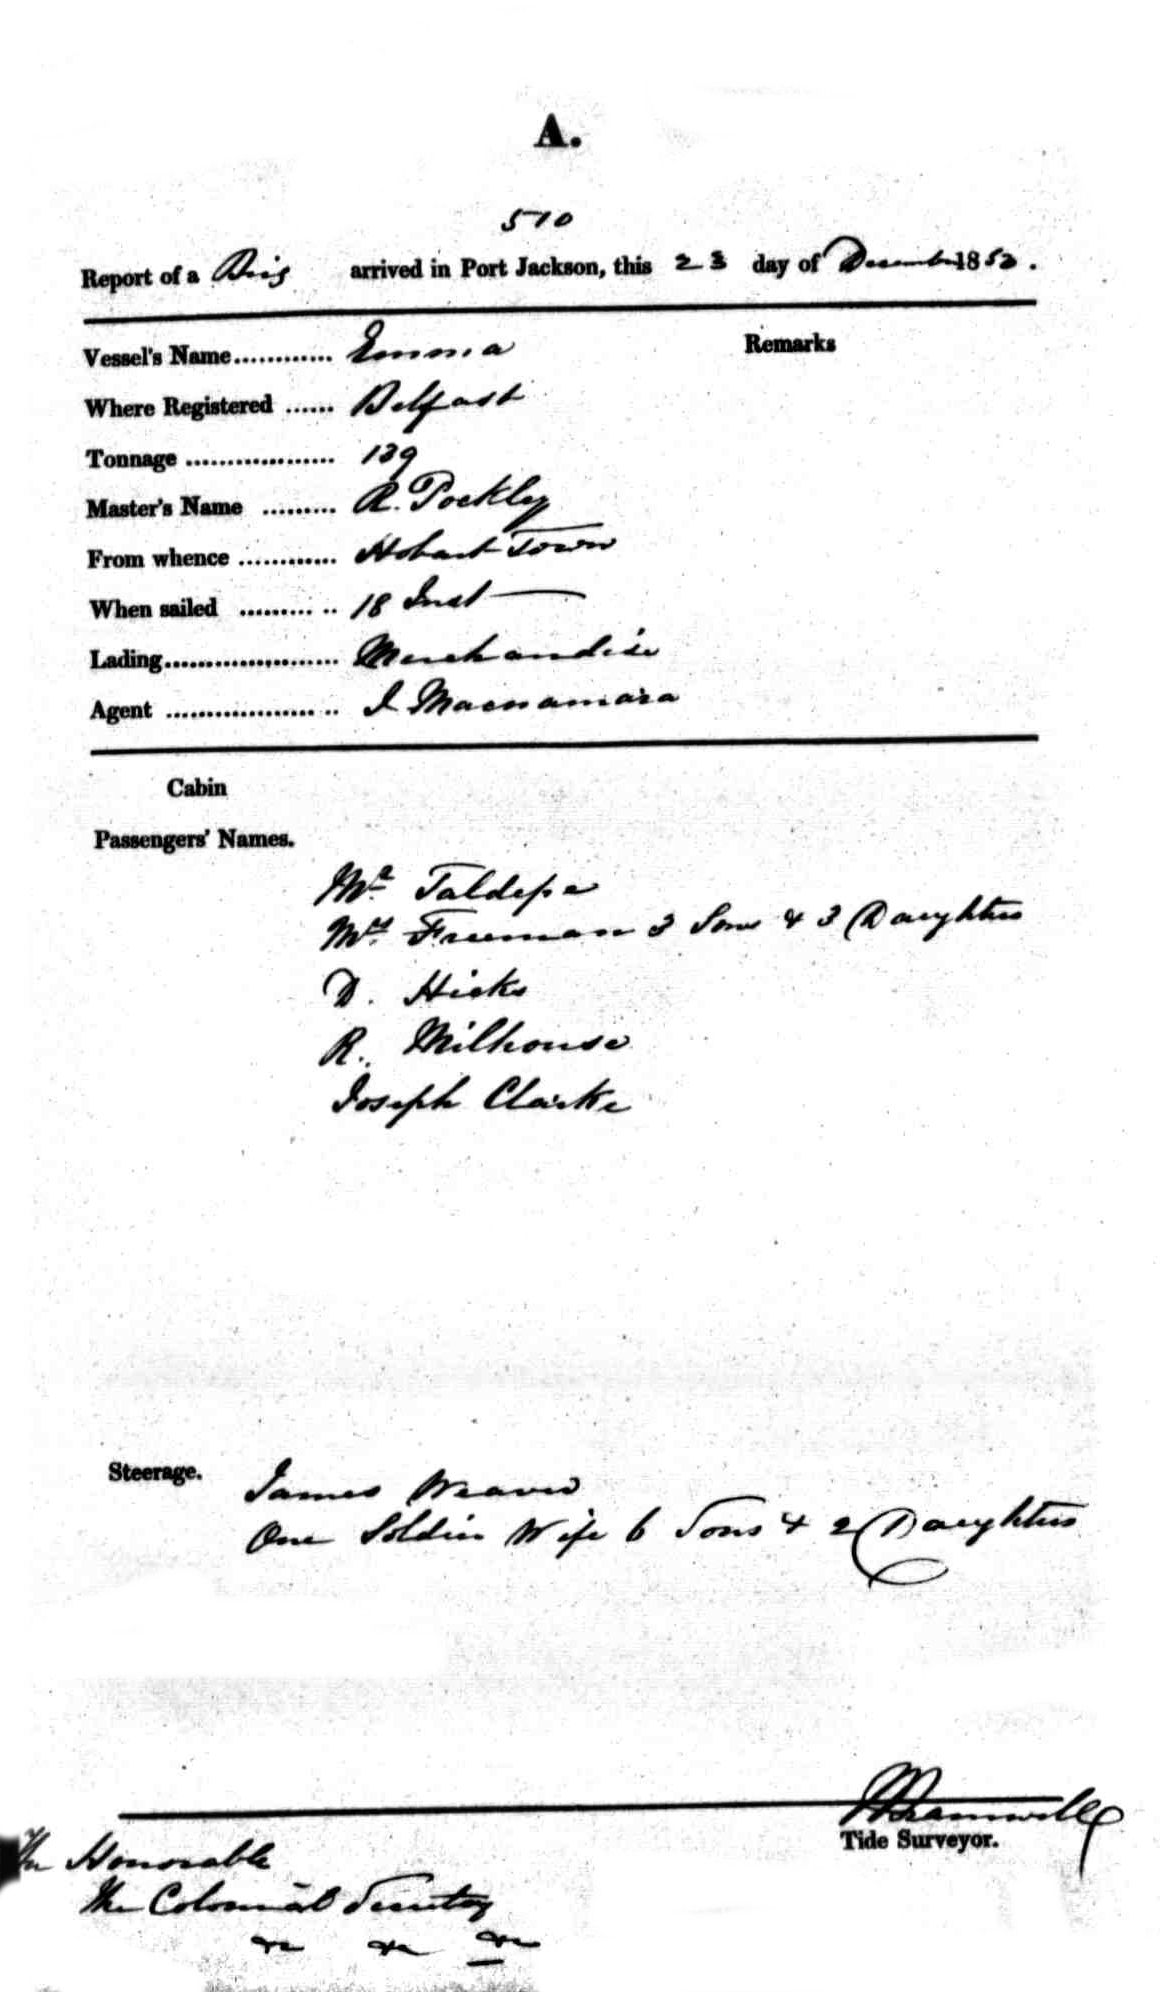 A.
510
Report of a Brig arrived in Port Jackson, this 23 day of December 1852.
Vessel's Name............ Emma
Remarks
Where Registered ...... Belfast
Tonnage .................. 139
Master's Name ......... R. Pockley
From whence ............ Hobart Town
When sailed ......... .. 18 Inst
Lading..................... Merchandise
Agent .................. .. I Macnamara
Cabin
Passengers' Names.
Mr. Taldepe
Mrs. Freeman 3 Sons & 3 Daughters
D. Hicks
R. Milhouse
Joseph Clarke
Steerage.
James Weaver
One Soldier Wife 6 Sons & 2 Daughters
Bramwell
Tide Surveyor.
The Honorable
The Colonial Secretary
&c &c &c